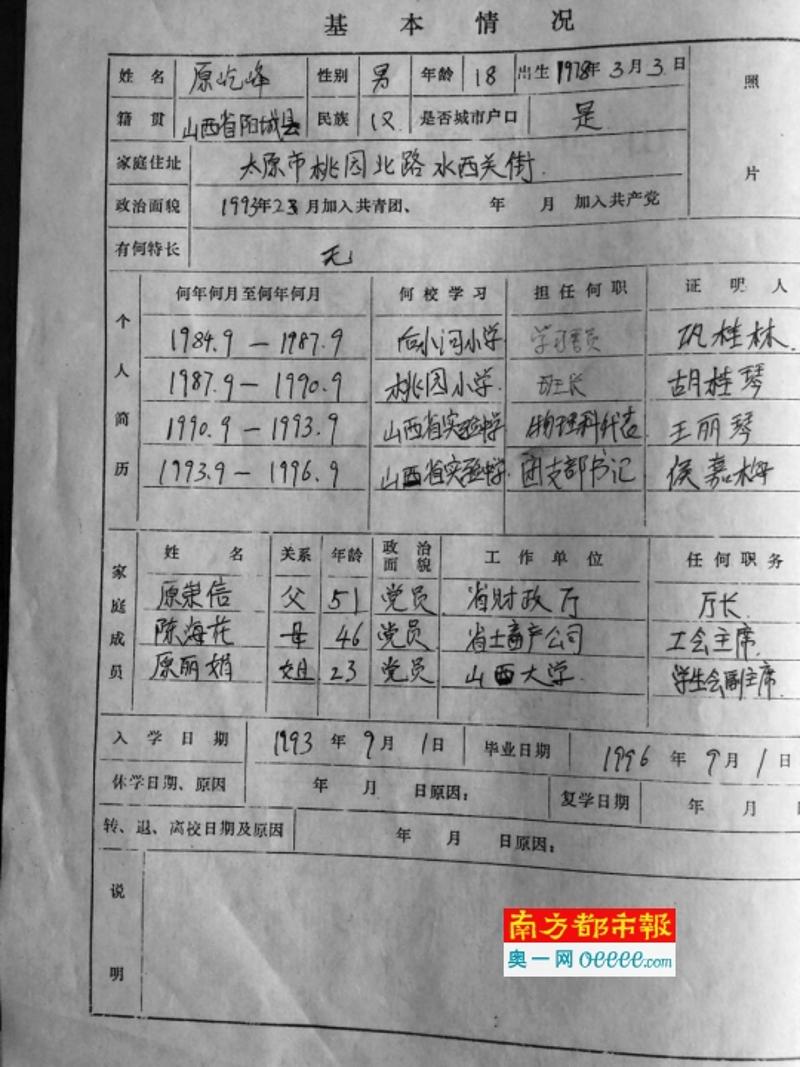 基本情况
姓名 原屹峰 性别 男 年龄 18 出生 1978年3月3日 照片
籍贯 山西省阳城县 民族 汉 是否城市户口 是
家庭住址 太原市桃园北路水西关街.
政治面貌 1993年23月加入共青团、 年 月 加入共产党
有何特长 无
个人简历 何年何月至何年何月 何校学习 担任何职 证明人
1984.9 — 1987.9 后小河小学 学习委员 巩桂林.
1987.9 — 1990.9 桃园小学. 班长 胡桂琴
1990.9 — 1993.9 山西省实验中学 物理科代表 王丽琴
1993.9 — 1996.9 山西省实验中学. 团支部书记 侯嘉梅
家庭成员 姓名 关系 年龄 政治面貌 工作单位 任何职务
原崇信 父 51 党员 省财政厅 厅长.
陈海花 母 46 党员 省土畜产公司 工会主席.
原丽娟 姐 23 党员 山西大学. 学生会副主席.
入学日期 1993年9月1日 毕业日期 1996年9月1日
休学日期、原因 年 月 日原因: 复学日期 年 月 日
转、退、离校日期及原因 年 月 日原因:
说明
南方都市報
奥一网 oeeee.com